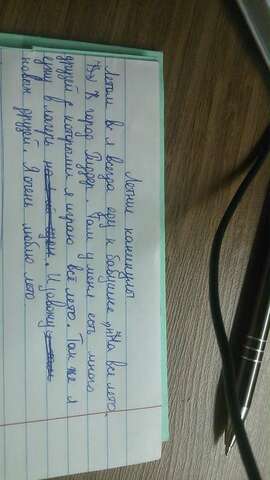 Летние каникулы
Летом я всегда еду к бабушке, на всё лето,
в город Риддер. Там у меня есть много
друзей с которыми я играю всё лето. Так же я
езжу в лагерь И завожу
новых друзей. Я очень люблю лето.